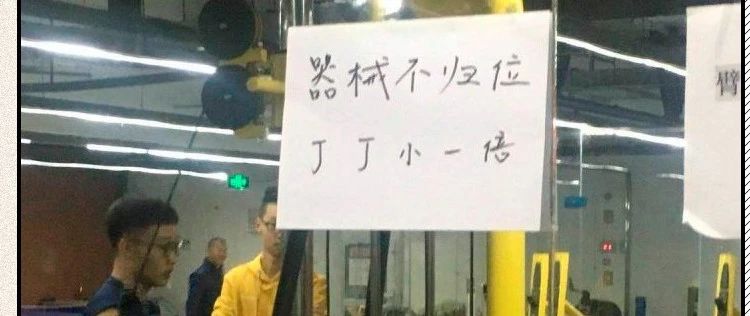 器械不归位
丁丁小一倍
臂